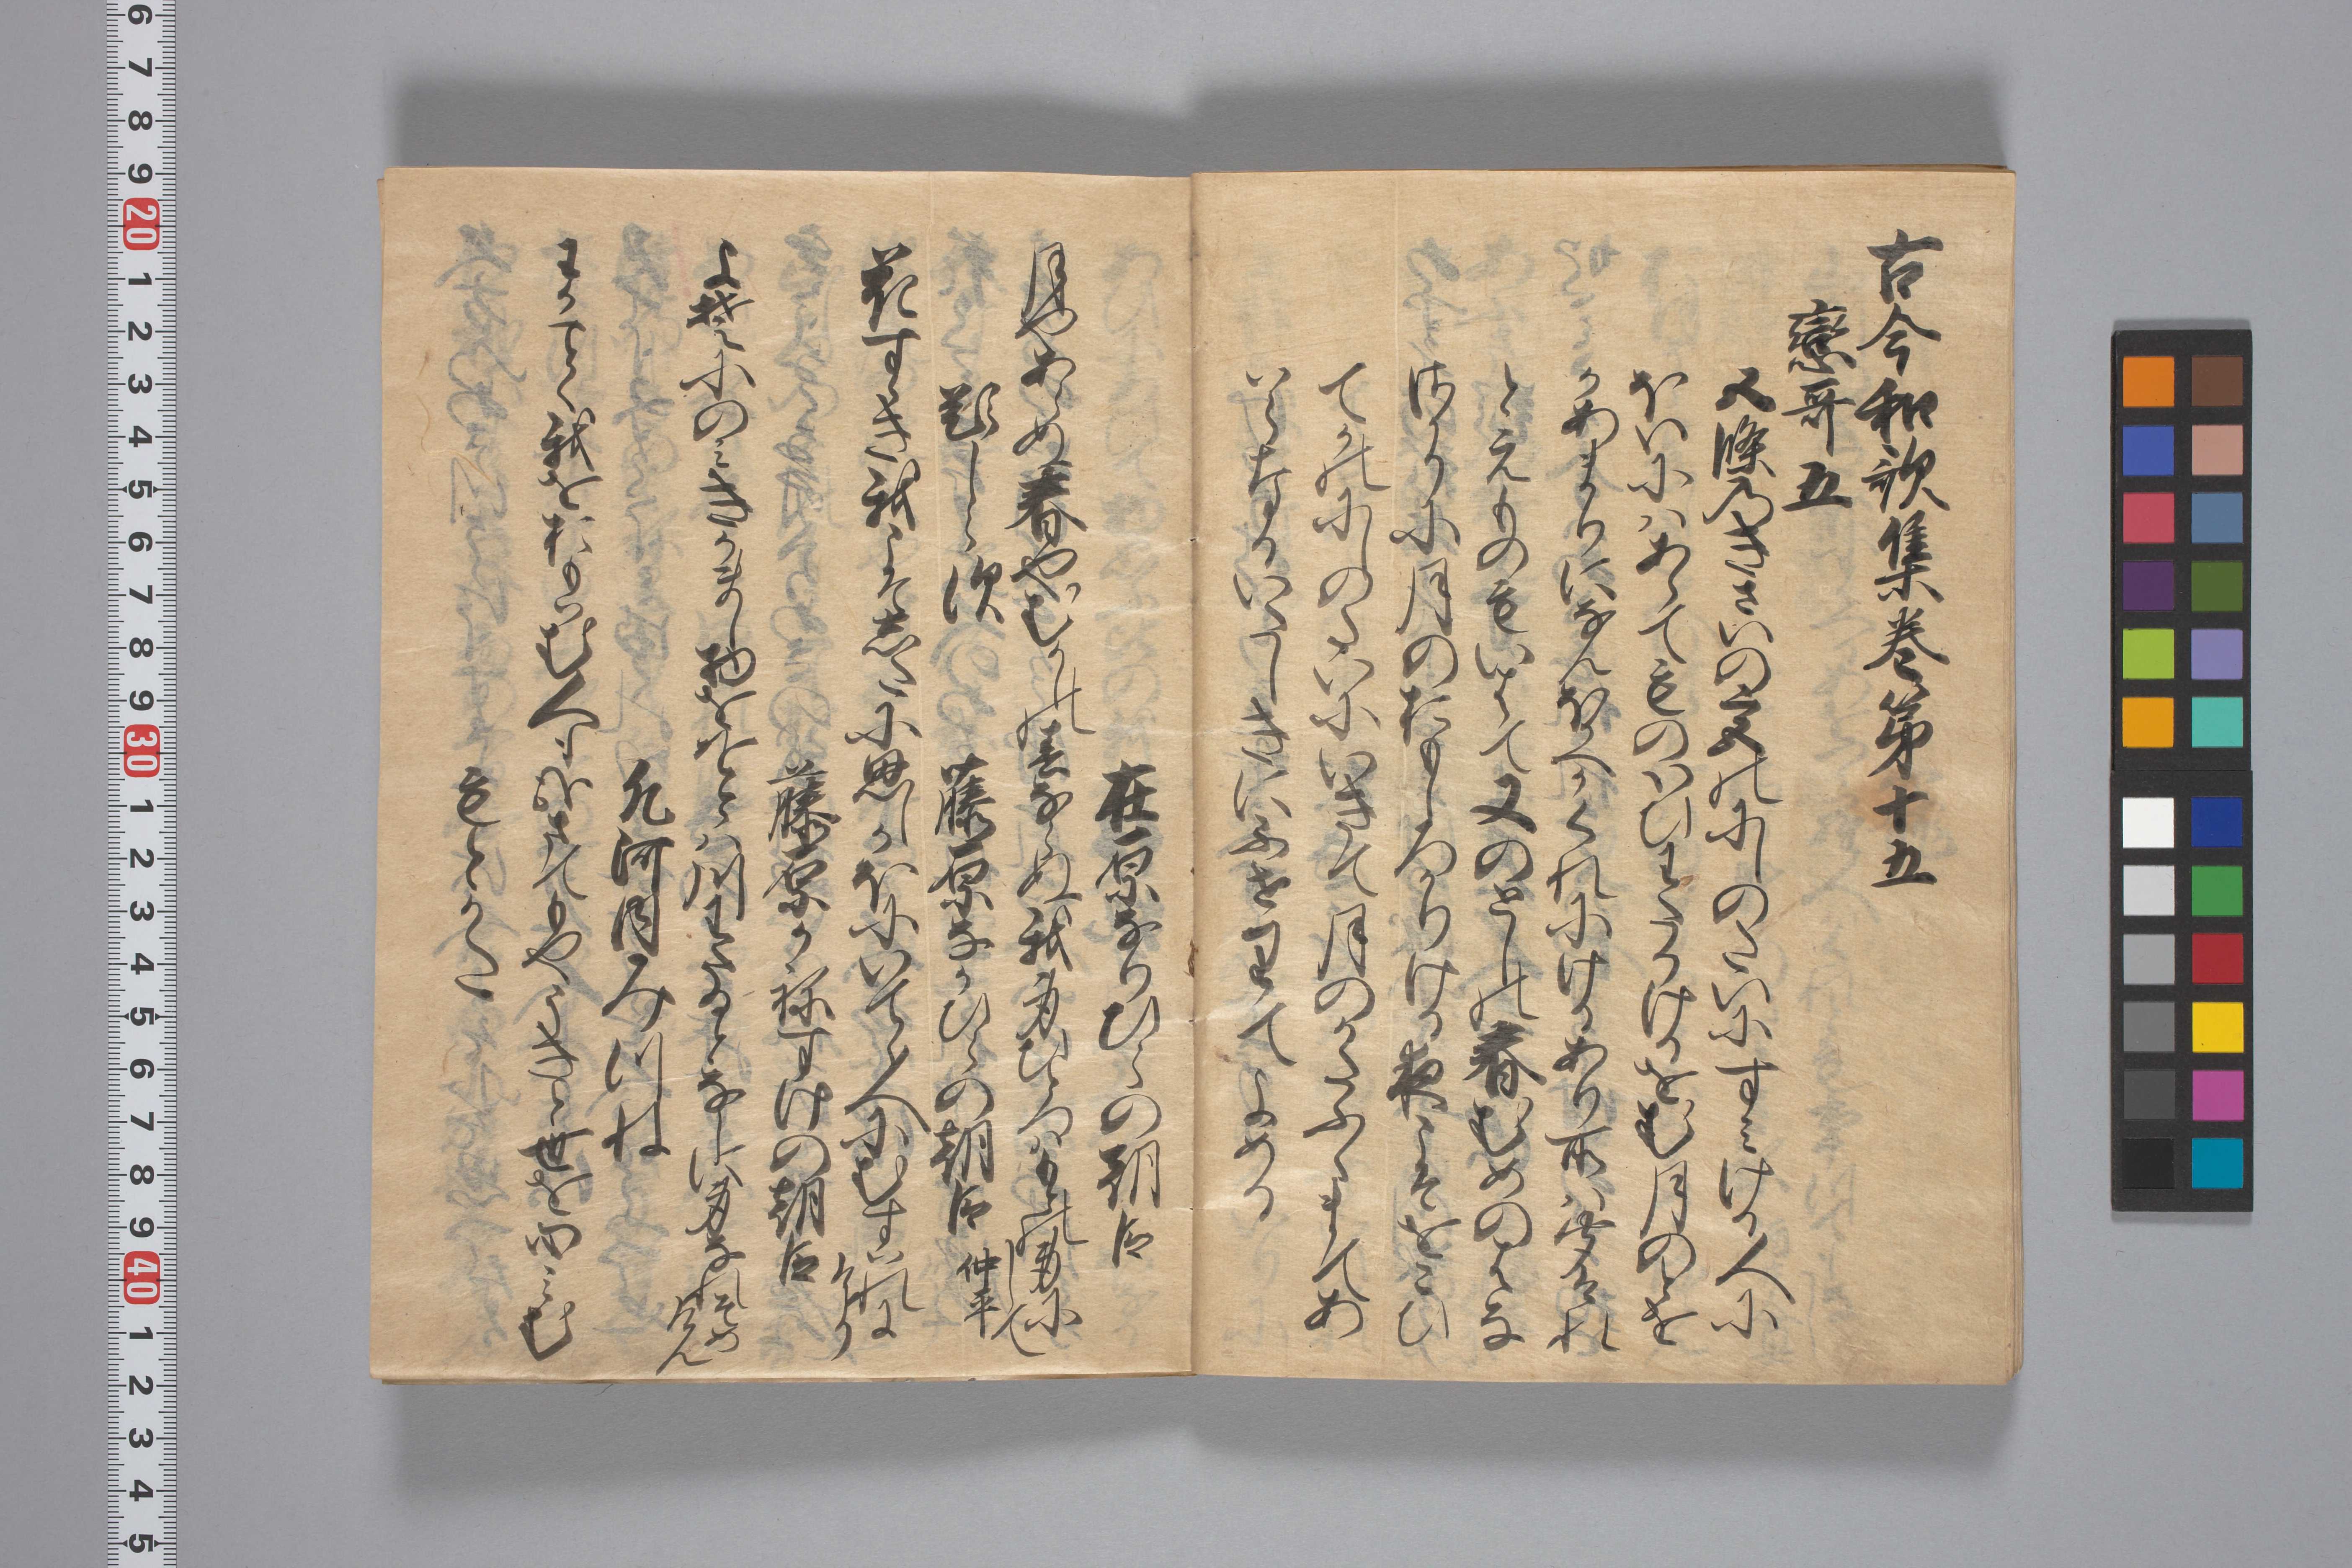 古今和歌集巻第十五
戀哥五
五條のきさいの宮のにしのたいにすみける人に
ほいにはあらてものいひわたりけるをむ月のとを
かあまりになんほかへかくれにけるあり所はきゝけれ
とえものもいはて又のとしの春むめのはなさ
かりに月のおもしろかりける夜こそをこひ
てかのにしのたいにいきて月のかたふくまてあ
はらなるいたしきにふせりてよめる
在原なりひらの朝臣
月やあらぬ春やむかしの春ならぬ我身ひとつはもとの身に
して
題しらす
藤原なかひらの朝臣 仲平
花すゝき我こそしたに思しかほにいてゝ人にむすはれに
けり
藤原かねすけの朝臣
よそにのみきかまし物をおとは川わたるとなしに身なれそめ
けん
凡河内みつね
わかことく我をおもはむ人もかなさてもやうきと世を心みむ
もとかた